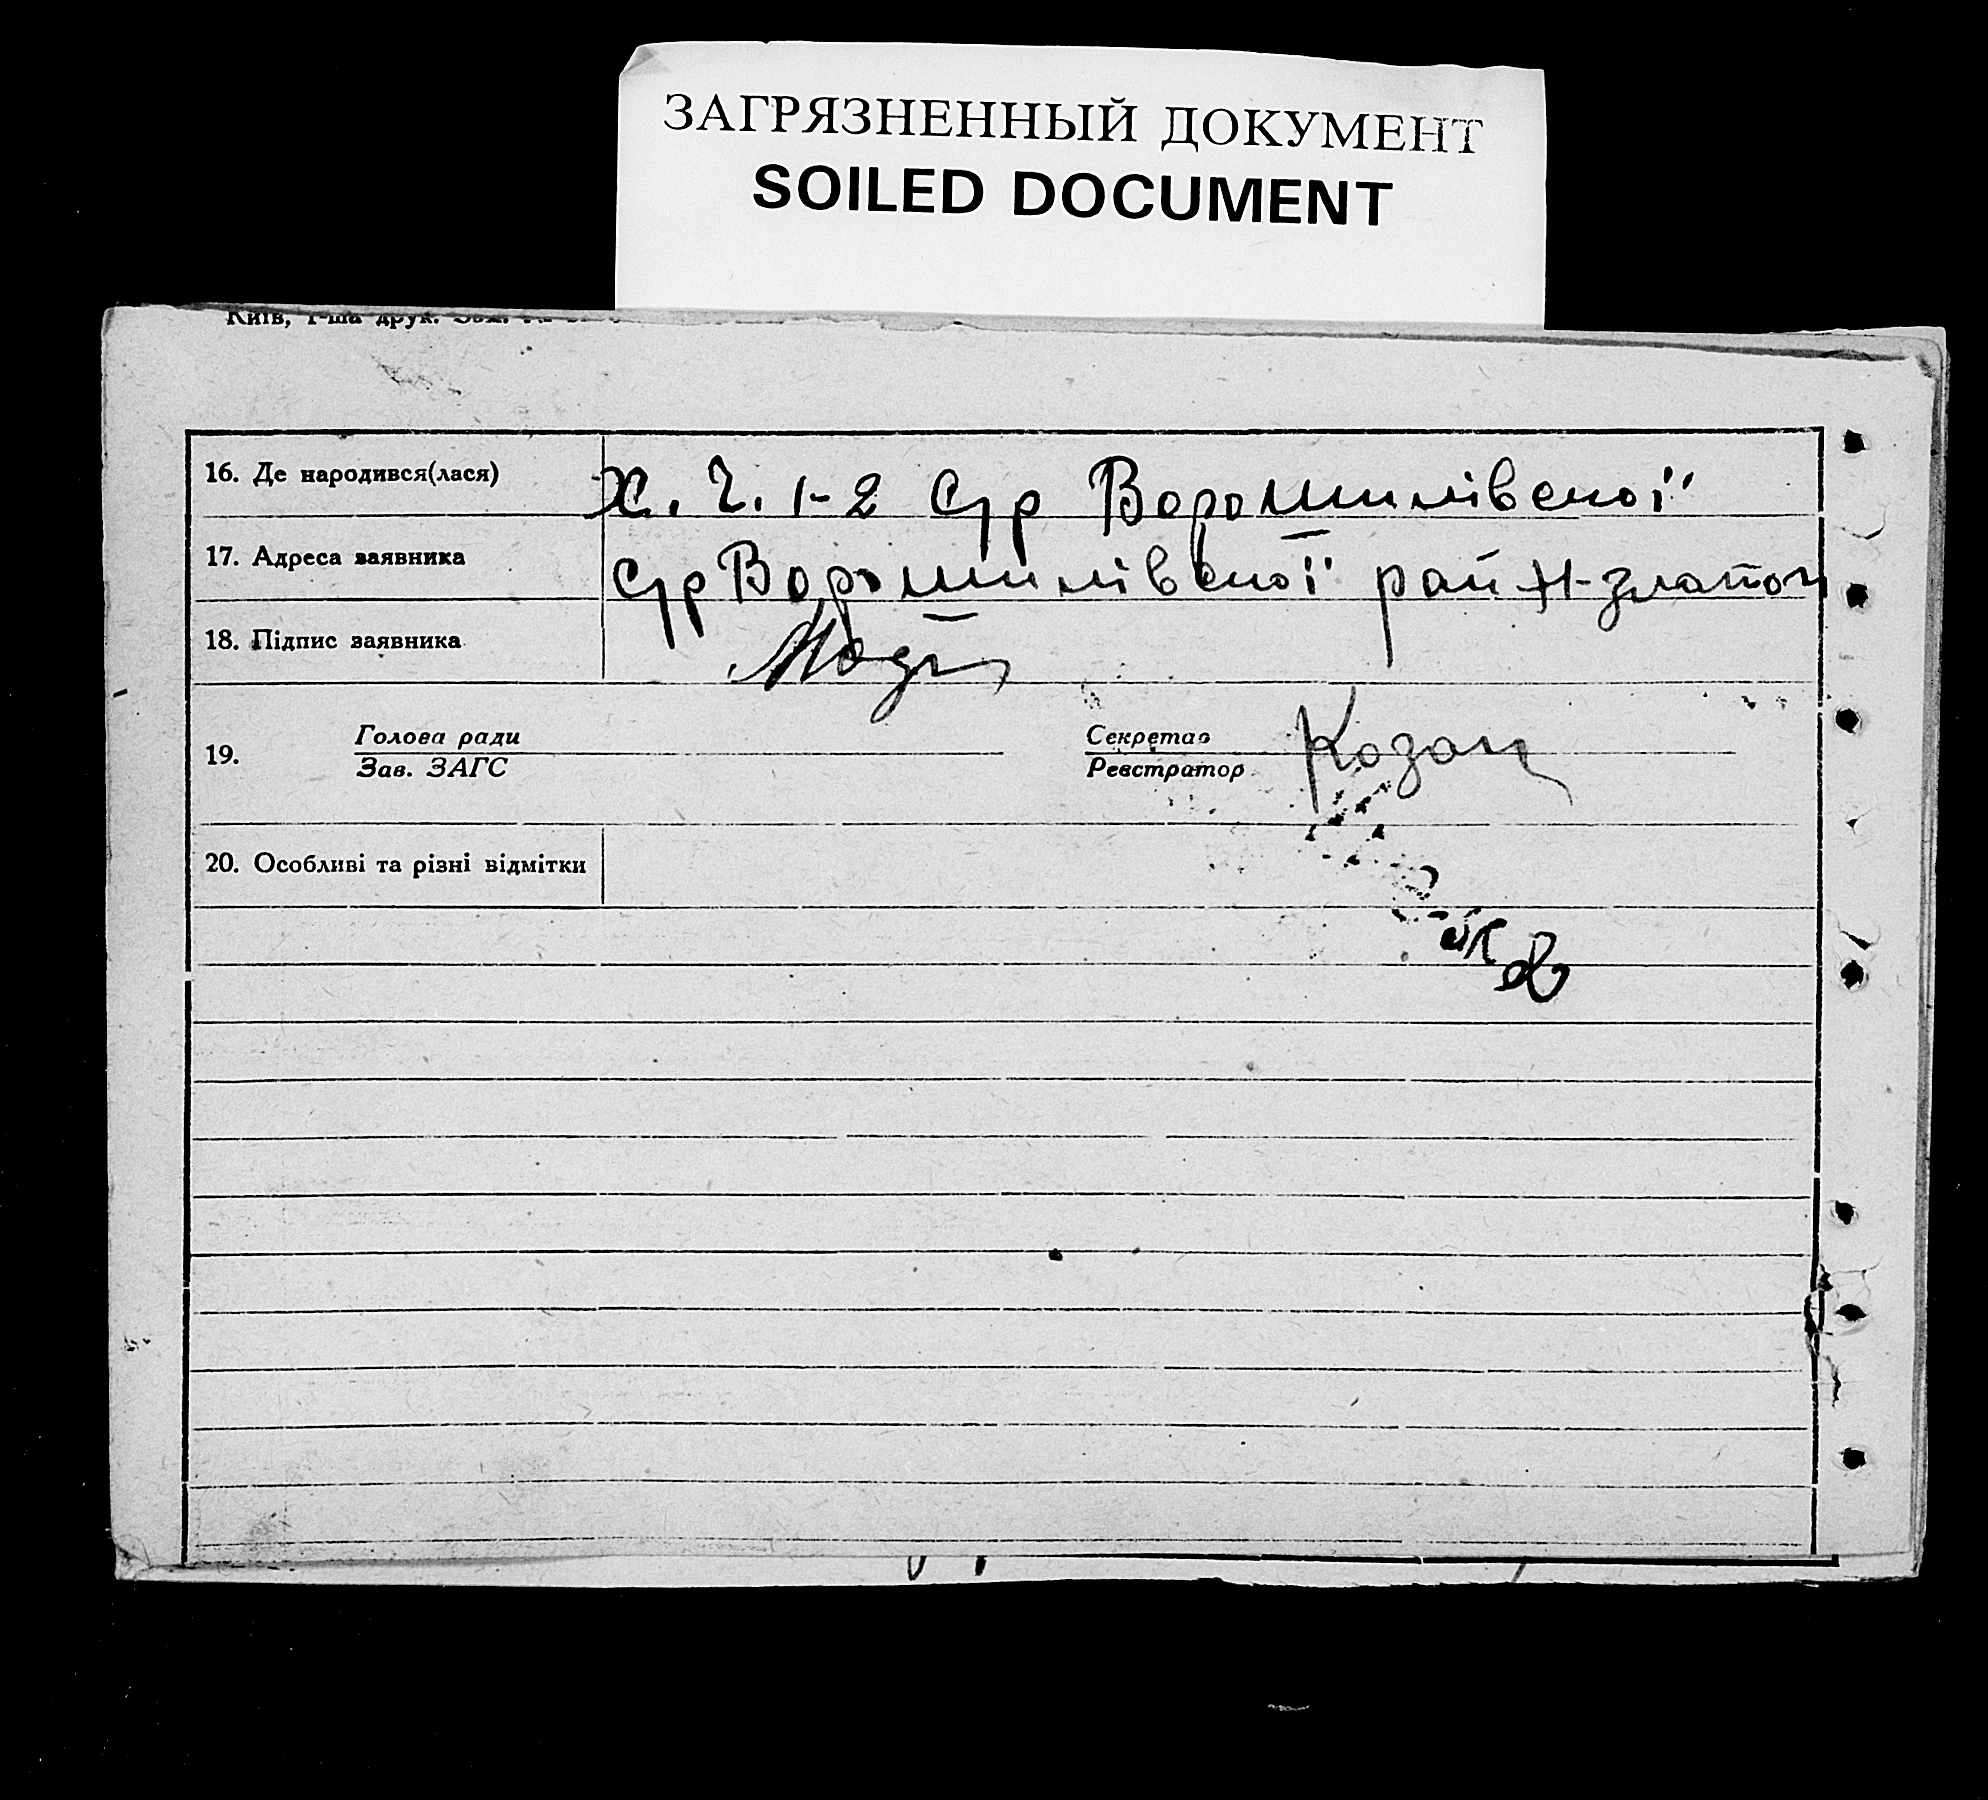 ЗАГРЯЗНЕННЫЙ ДОКУМЕНТ
SOILED DOCUMENT
Київ, 1-ша друк. Зам.
16. Де народився(лася) Х. Ч. 1-2 с/р Ворошилівської
17. Адреса заявника с/р Ворошилівської рай Н-златоп
18. Підпис заявника
19. Голова ради Секретар Козак
Зав. ЗАГС Реєстратор
20. Особливі та різні відмітки